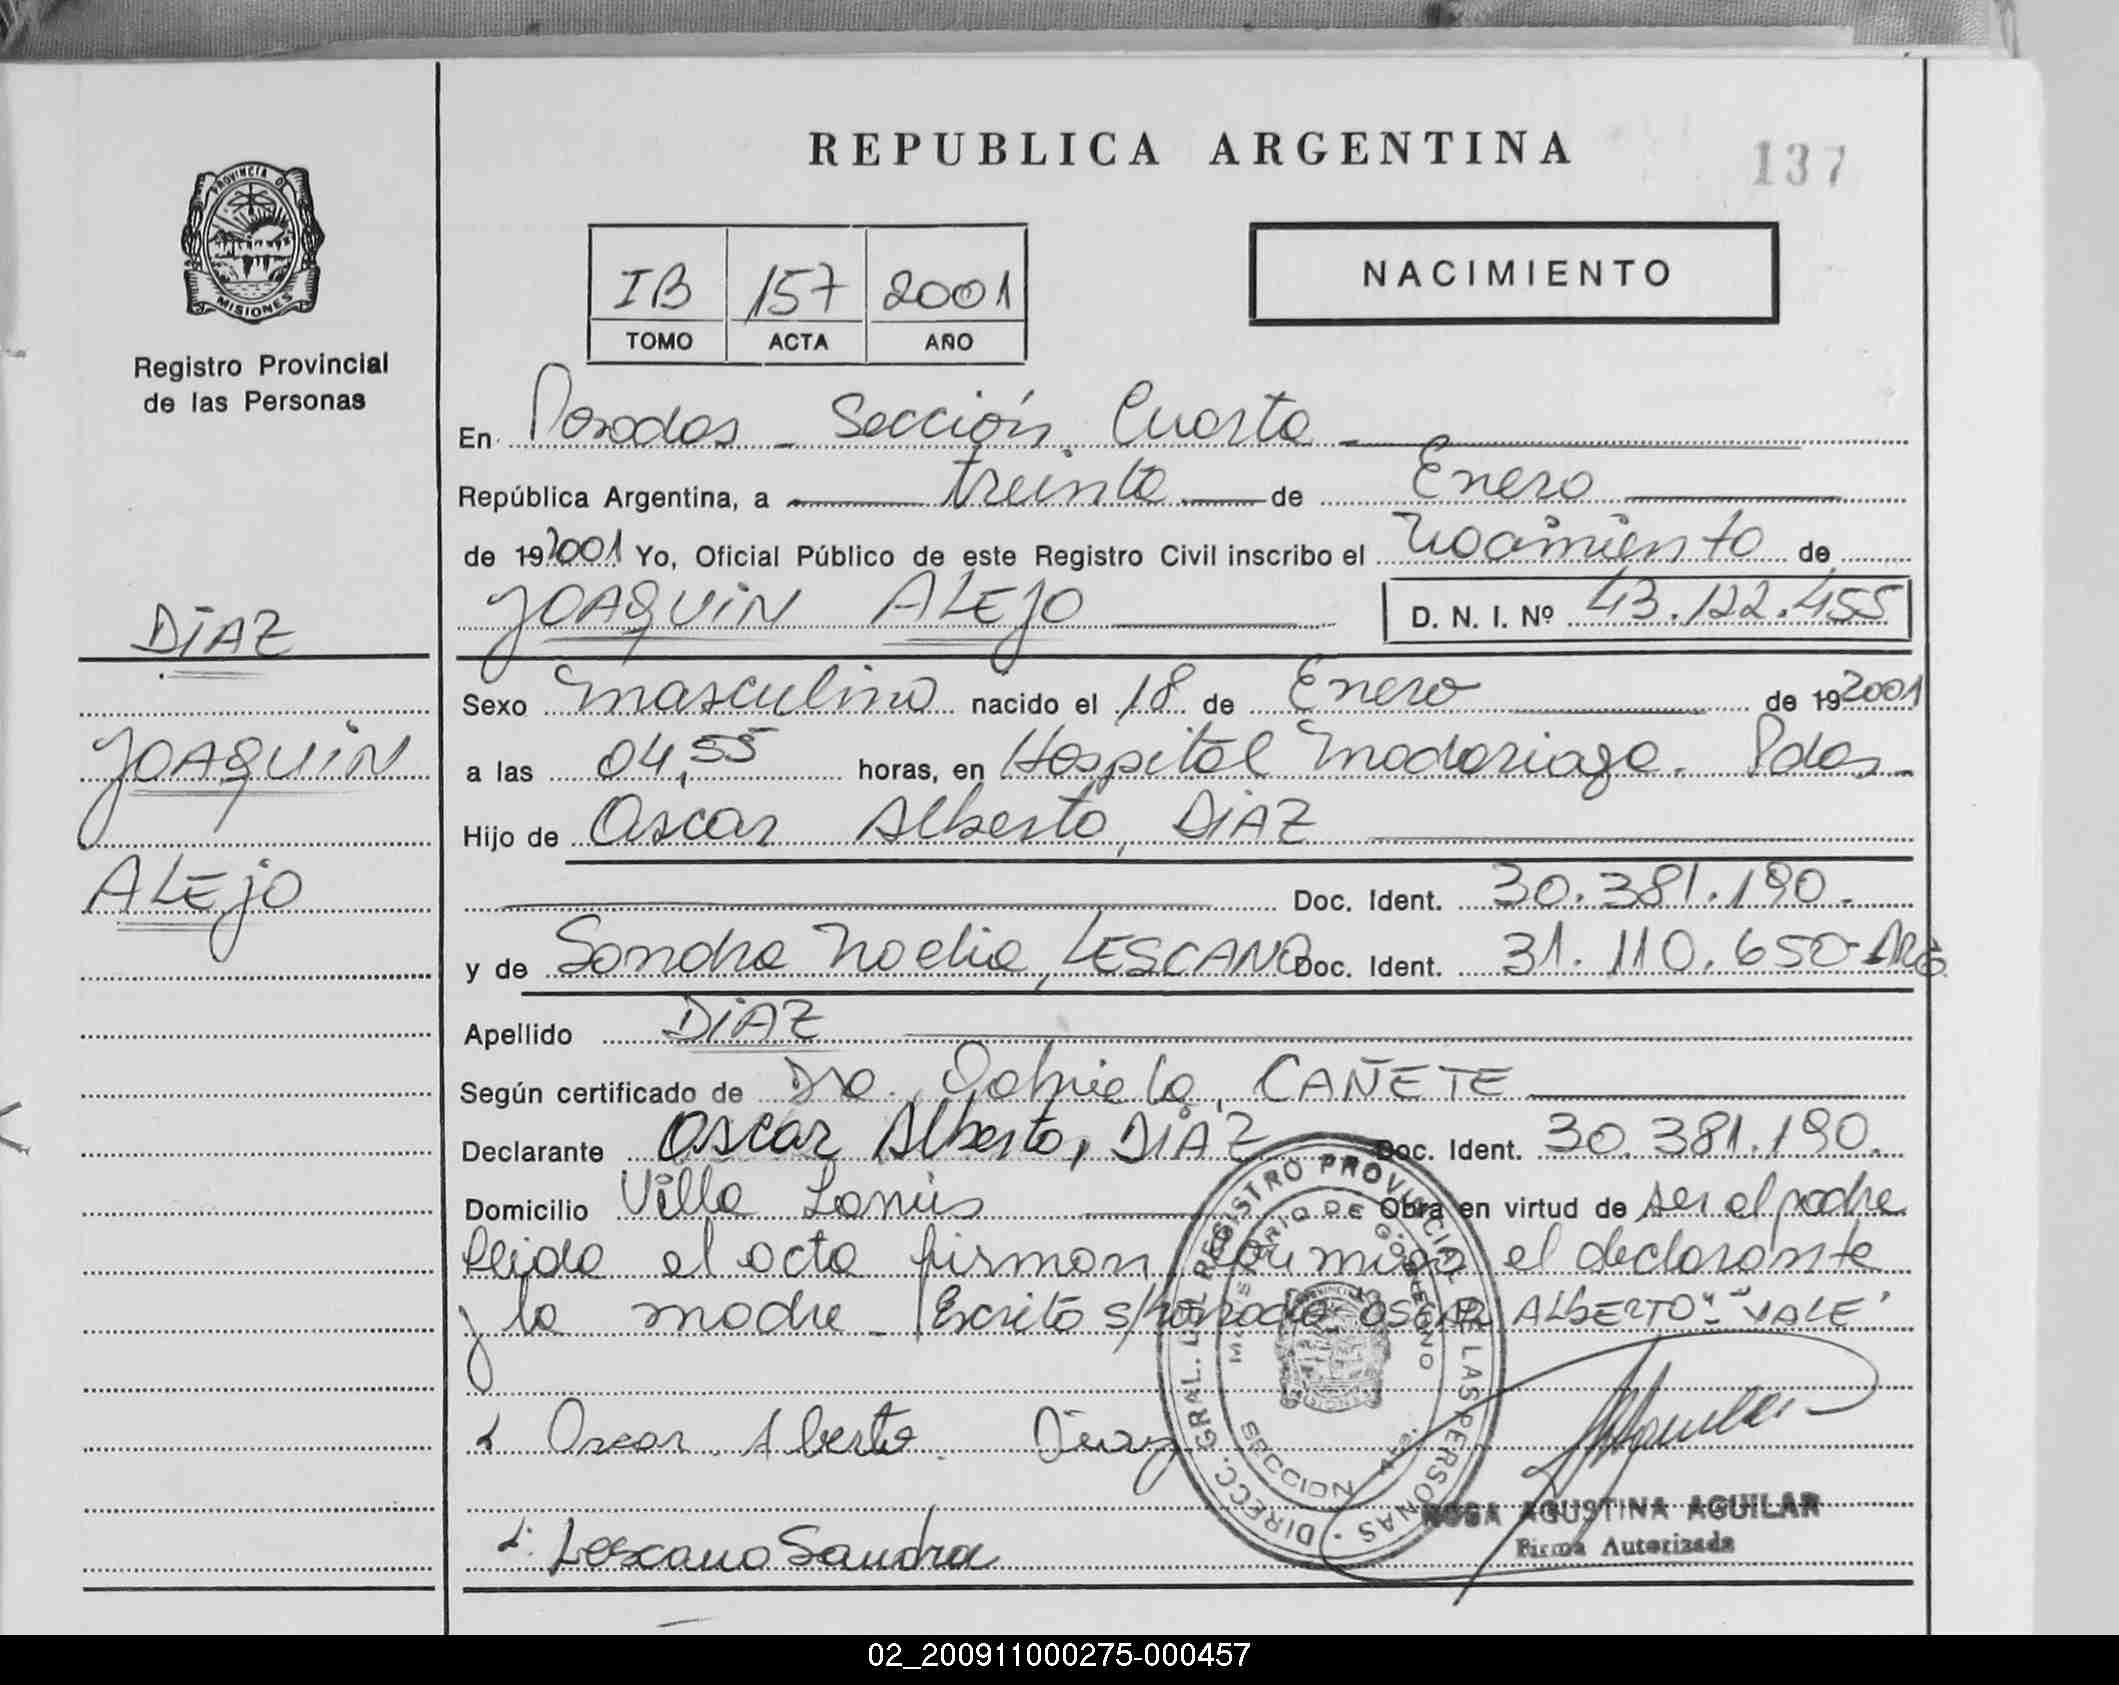 REPUBLICA ARGENTINA
137
PROVINCIA DE
MISIONES
Registro Provincial
de las Personas
IB 157 2001
TOMO ACTA AÑO
NACIMIENTO
En Posadas - Sección Cuarta -
República Argentina, a treinta de Enero
de 192001 Yo, Oficial Público de este Registro Civil inscribo el Nacimiento de
JOAQUIN ALEJO D. N. I. Nº 43.122.455
DIAZ
JOAQUIN
ALEJO
Sexo masculino nacido el 18 de Enero de 192001
a las 04,55 horas, en Hospital Madariaga. Pdas.
Hijo de Oscar Alberto, DIAZ
Doc. Ident. 30.381.190.
y de Sandra Noelia, LESCANO Doc. Ident. 31.110.650-ARG
Apellido DIAZ
Según certificado de Dra. Gabriela, CAÑETE
Declarante Oscar Alberto, DIAZ Doc. Ident. 30.381.190.
Domicilio Villa Lanús Obra en virtud de ser el padre
leida el acta firman conmigo el declarante
y la madre - Escrito s/raspado "OSCAR ALBERTO" - "VALE"
Oscar Alberto Diaz
Lescano Sandra
DIRECC. GRAL. DEL REGISTRO PROVINCIAL DE LAS PERSONAS
MINISTERIO DE GOBIERNO
SECCION 4ta.
ROSA AGUSTINA AGUILAR
Firma Autorizada
02_200911000275-000457